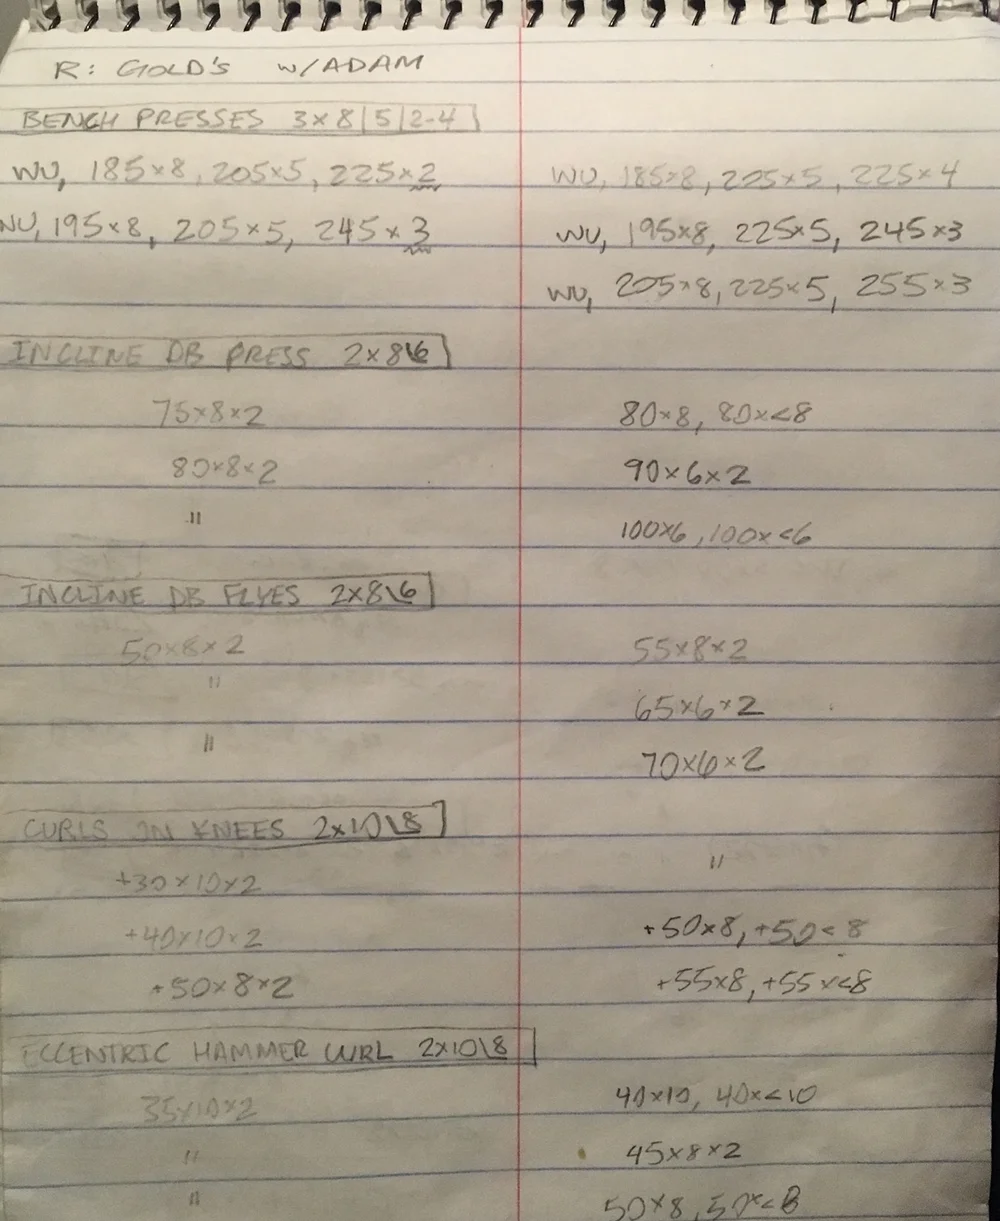 R: GOLD'S W/ADAM
BENCH PRESSES 3×8|5|2-4
WU, 185×8, 205×5, 225×2 WU, 185×8, 225×5, 225×4
WU, 195×8, 205×5, 245×3 WU, 195×8, 225×5, 245×3
WU, 205×8, 225×5, 255×3
INCLINE DB PRESS 2×8\6
75×8×2 80×8, 80×<8
80×8×2 90×6×2
" 100×6, 100×<6
INCLINE DB FLYES 2×8\6
50×8×2 55×8×2
" 65×6×2
" 70×6×2
CURLS ON KNEES 2×10\8
+30×10×2 "
+40×10×2 +50×8, +50<8
+50×8×2 +55×8, +55×<8
ECCENTRIC HAMMER CURL 2×10\8
35×10×2 40×10, 40×<10
" 45×8×2
" 50×8, 50×<8